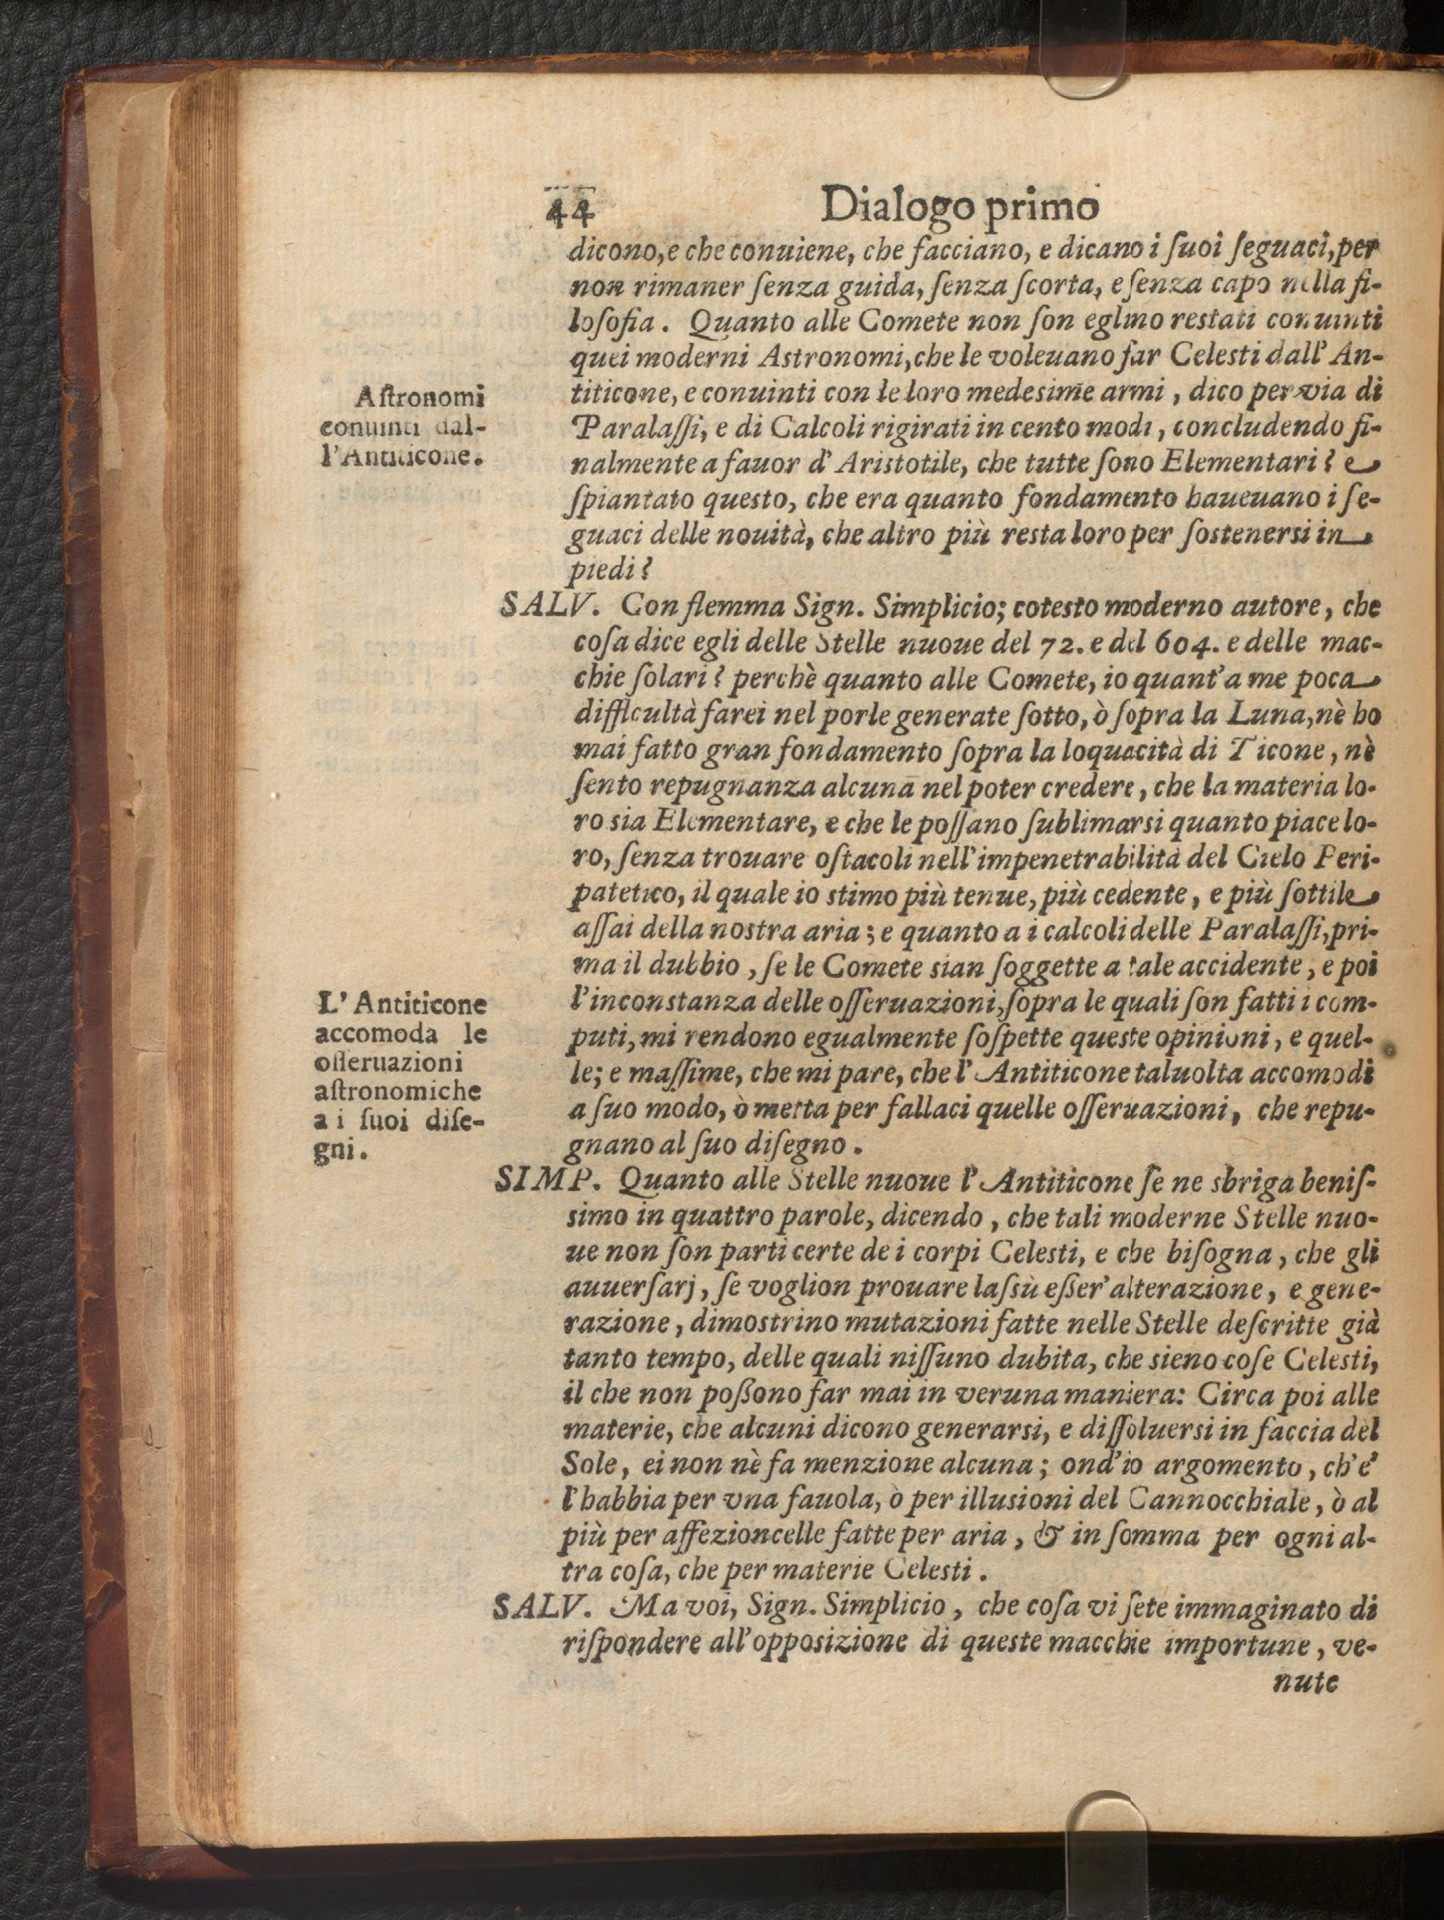 44 Dialogo primo
dicono, e che conuiene, che facciano, e dicano i ſuoi ſeguaci, per
non rimaner ſenza guida, ſenza ſcorta, e ſenza capo nella fi-
loſofia. Quanto alle Comete non ſon eglino reſtati conuinti
quei moderni Astronomi, che le voleuano far Celesti dall'An-
titicone, e conuinti con le loro medesime armi, dico per via di
Paralaſſi, e di Calcoli rigirati in cento modi, concludendo fi-
nalmente a fauor d'Aristotile, che tutte ſono Elementari? e
ſpiantato questo, che era quanto fondamento haueuano i ſe-
guaci delle nouità, che altro più resta loro per ſostenersi in
piedi?
Aſtronomi
conuinti dal-
l'Antiticone.
SALV. Con flemma Sign. Simplicio; cotesto moderno autore, che
coſa dice egli delle Stelle nuoue del 72. e del 604. e delle mac-
chie ſolari? perchè quanto alle Comete, io quant'a me poca
difficultà farei nel porle generate ſotto, ò ſopra la Luna, nè ho
mai fatto gran fondamento ſopra la loquacità di Ticone, nè
ſento repugnanza alcuna nel poter credere, che la materia lo-
ro sia Elementare, e che le poſſano ſublimarsi quanto piace lo-
ro, ſenza trouare oſtacoli nell'impenetrabilità del Cielo Peri-
patetico, il quale io stimo più tenue, più cedente, e più ſottile
aſſai della nostra aria; e quanto a i calcoli delle Paralaſſi, pri-
ma il dubbio, ſe le Comete sian ſoggette a tale accidente, e poi
l'inconstanza delle oſſeruazioni, ſopra le quali ſon fatti i com-
puti, mi rendono egualmente ſoſpette queste opinioni, e quel-
le; e maſſime, che mi pare, che l'Antiticone taluolta accomodi
a ſuo modo, ò metta per fallaci quelle oſſeruazioni, che repu-
gnano al ſuo diſegno.
L'Antiticone
accomoda le
oſſeruazioni
aſtronomiche
a i ſuoi diſe-
gni.
SIMP. Quanto alle Stelle nuoue l'Antiticone ſe ne sbriga beniſ-
simo in quattro parole, dicendo, che tali moderne Stelle nuo-
ue non ſon parti certe de i corpi Celesti, e che biſogna, che gli
auuerſarj, ſe voglion prouare laſsù eßer'alterazione, e gene-
razione, dimostrino mutazioni fatte nelle Stelle deſcritte già
tanto tempo, delle quali niſſuno dubita, che sieno coſe Celesti,
il che non poßono far mai in veruna maniera: Circa poi alle
materie, che alcuni dicono generarsi, e diſſoluersi in faccia del
Sole, ei non nè fa menzione alcuna; ond'io argomento, ch'e'
l'habbia per vna fauola, ò per illusioni del Cannocchiale, ò al
più per affezioncelle fatte per aria, & in ſomma per ogni al-
tra coſa, che per materie Celesti.
SALV. Ma voi, Sign. Simplicio, che coſa vi ſete immaginato di
riſpondere all'opposizione di queste macchie importune, ve-
nute